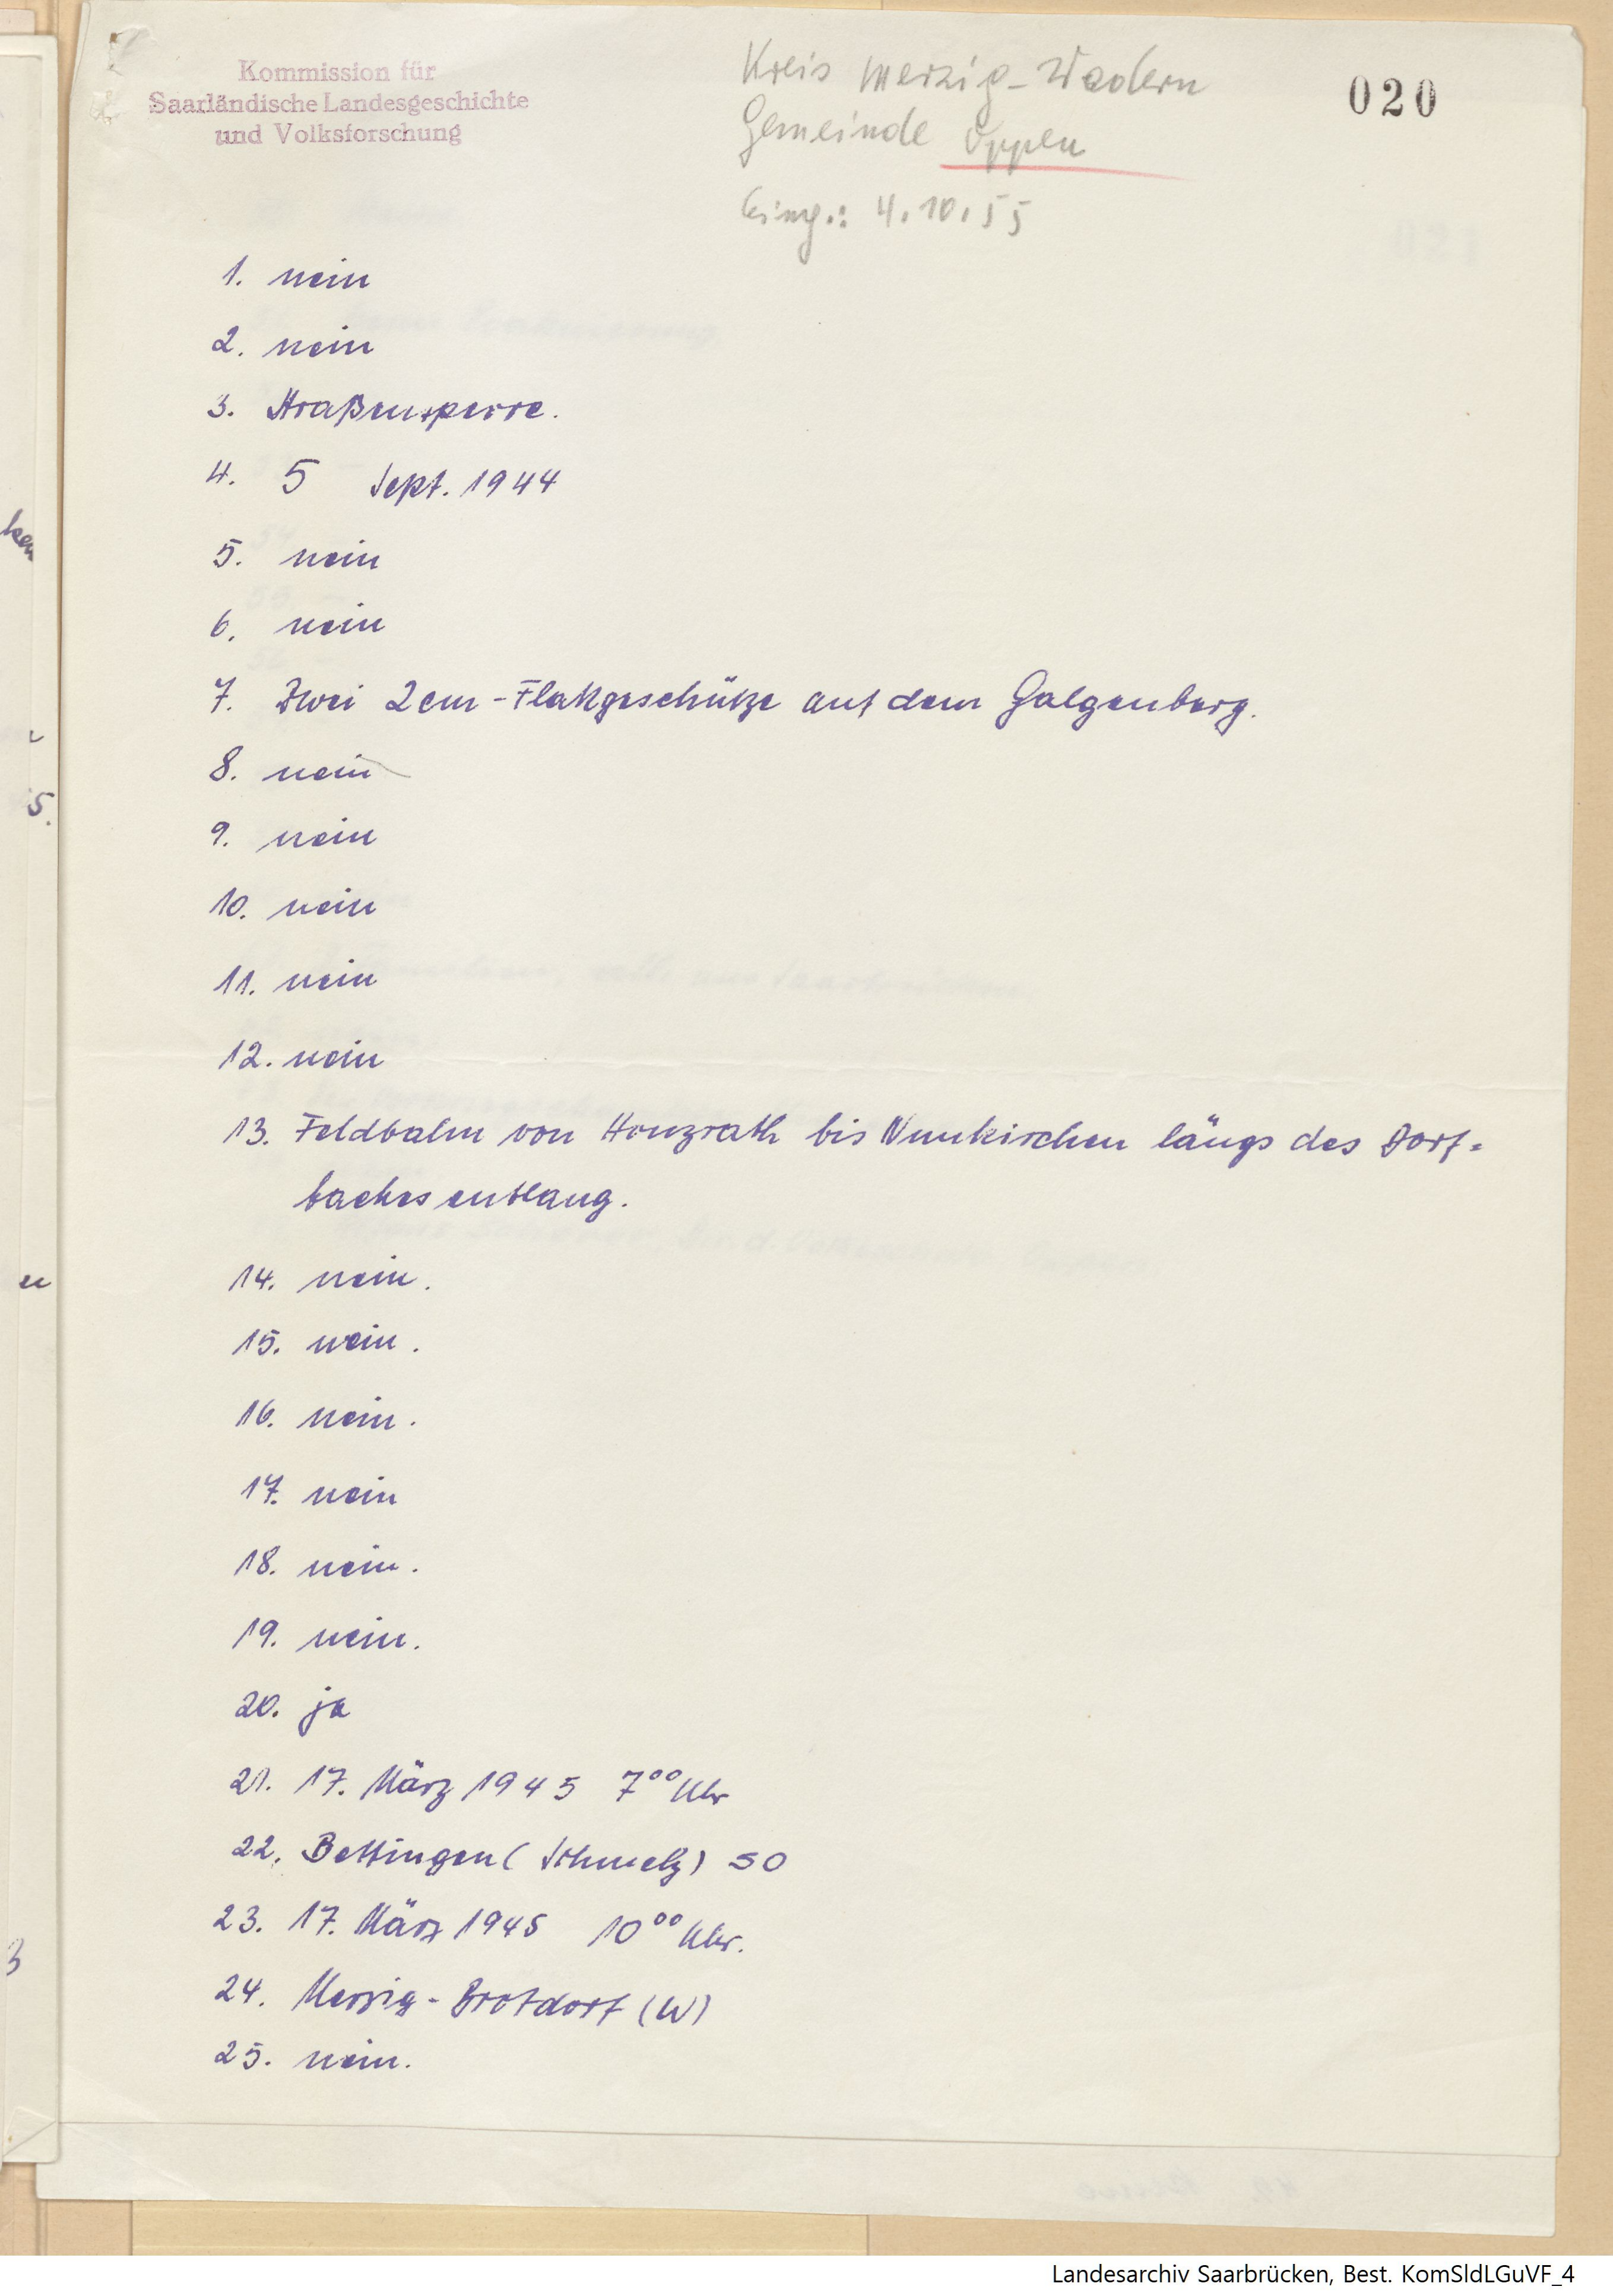 Kommission für
Saarländische Landesgeschichte
und Volksforschung
Kreis Merzig-Wadern
Gemeinde Oppen
Eing.: 4.10.55
020
1. nein
2. nein
3. Straßensperre.
4. 5 Sept. 1944
5. nein
6. nein
7. Zwei 2cm-Flakgeschütze auf dem Galgenberg.
8. nein
9. nein
10. nein
11. nein
12. nein
13. Feldbahn von Honzrath bis Nunkirchen längs des Dorf=
baches entlang.
14. nein.
15. nein.
16. nein.
17. nein
18. nein.
19. nein.
20. ja
21. 17. März 1945 7⁰⁰ Uhr
22. Bettingen (Schmelz) SO
23. 17. März 1945 10⁰⁰ Uhr.
24. Merzig-Brotdorf (W)
25. nein.
Landesarchiv Saarbrücken, Best. KomSldLGuVF_4